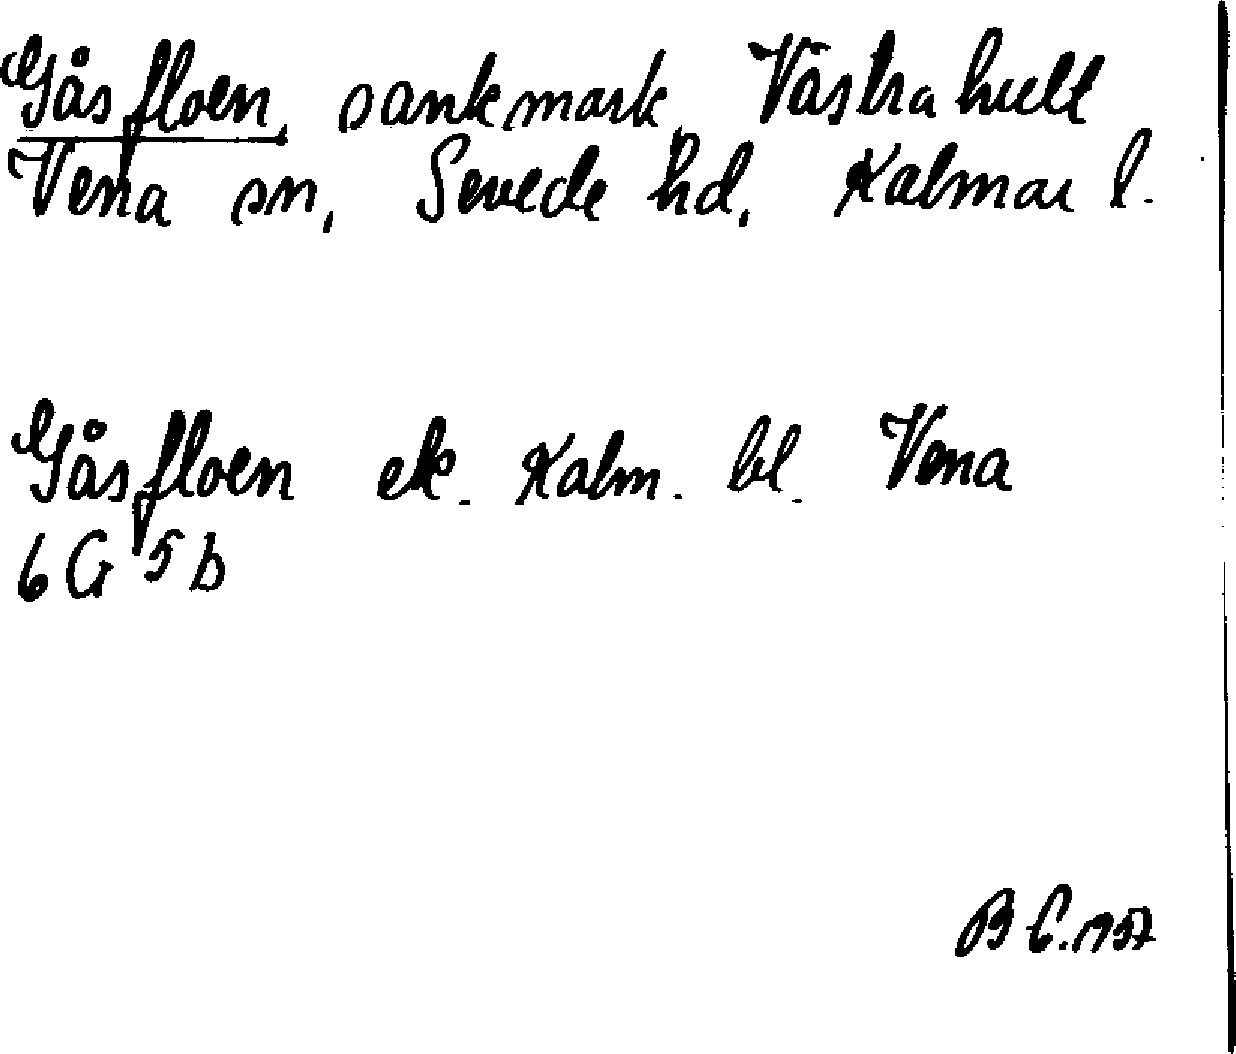 Gåsfloen, sankmark, Västra hult
Vena sn, Sevede hd, Kalmar l.
Gåsfloen ek. Kalm. bl. Vena
6 G 5 b
B C. 1957